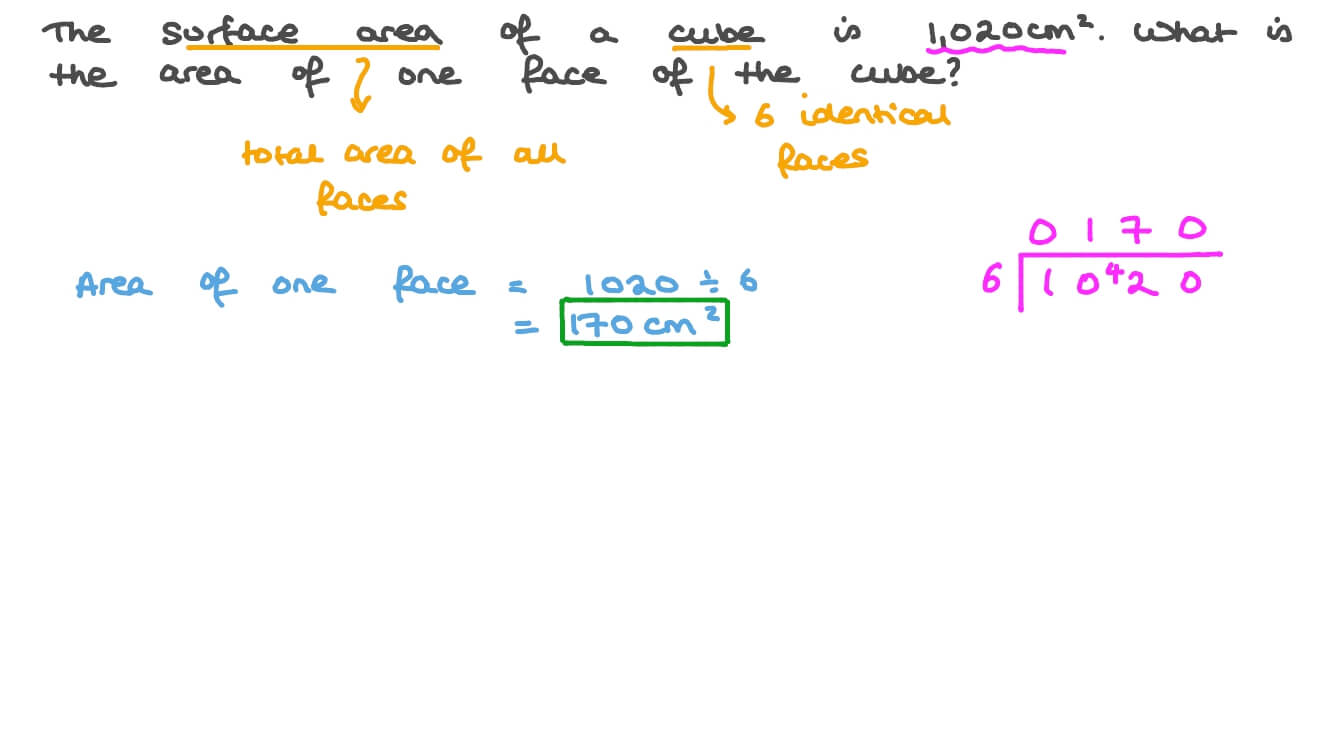 The surface area of a cube is 1,020cm². What is
the area of one face of the cube?
6 identical
faces
total area of all
faces
Area of one face = 1020 ÷ 6
= 170 cm²
0 1 7 0
6 1 0 ⁴2 0